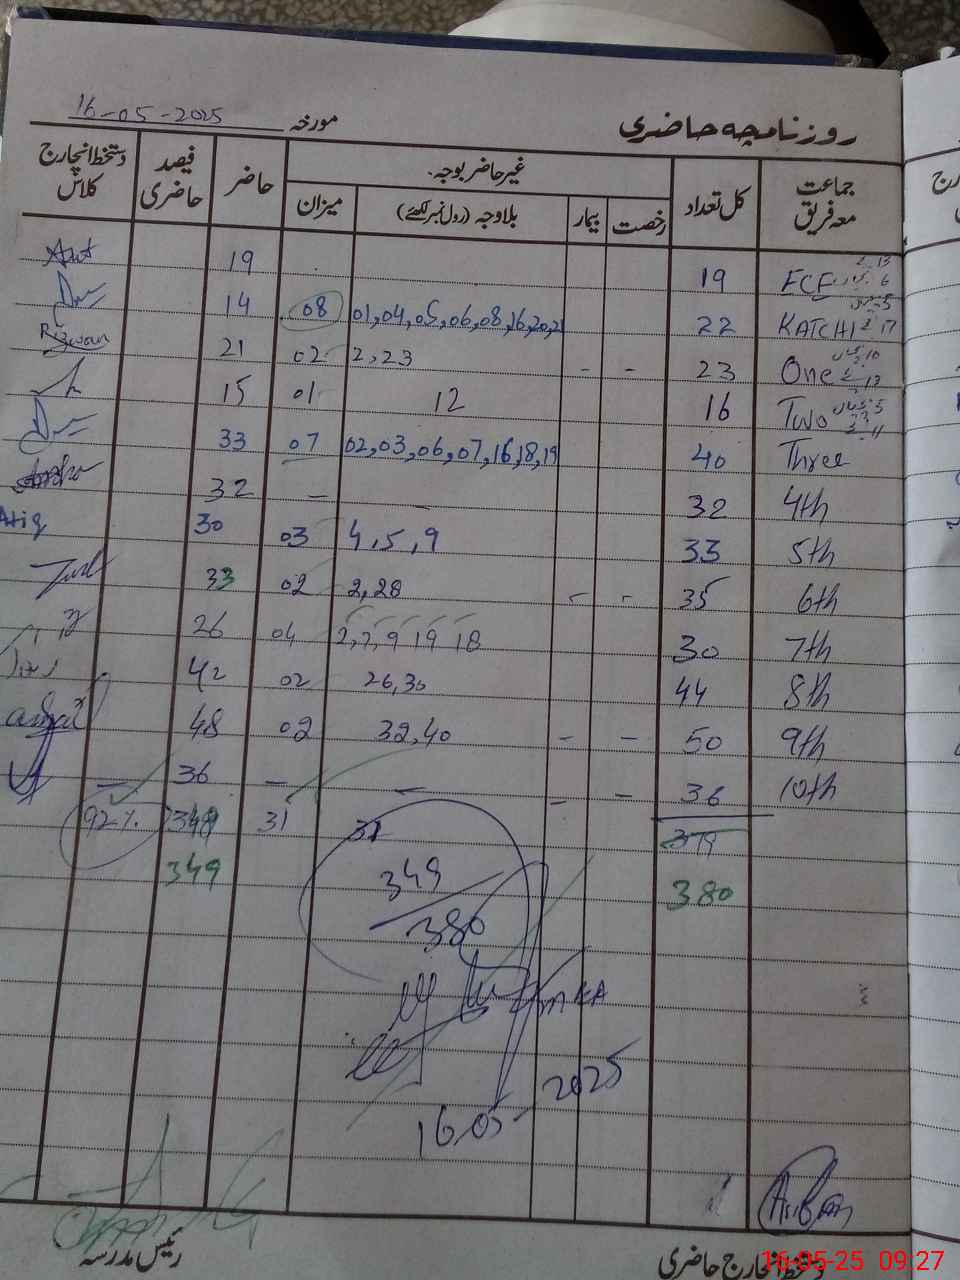 روزنامچہ حاضری مورخہ 16-05-2025
جماعت معہ فریق کل تعداد غیر حاضر بوجہ۔ حاضر فیصد حاضری دستخط انچارج کلاس
رخصت بیمار بلاوجہ (رول نمبر لکھئے) میزان
ECE 19 19
KATCHI 22 01,04,05,06,08,16,20,21 08 14
One 23 - - 2,23 02 21
Two 16 12 01 15
Three 40 02,03,06,07,16,18,19 07 33
4th 32 — 32
5th 33 4,5,9 03 30 Atiq
6th 35 - - 2,28 02 33
7th 30 2,7,9 19 18 04 26
8th 44 26,30 02 42
9th 50 - - 32,40 02 48
10th 36 - - — — 36 —
379 31 31 348 92%
380 349
349
380
16,05-2025
رئیس مدرسہ
دستخط انچارج حاضری
16-05-25 09:27